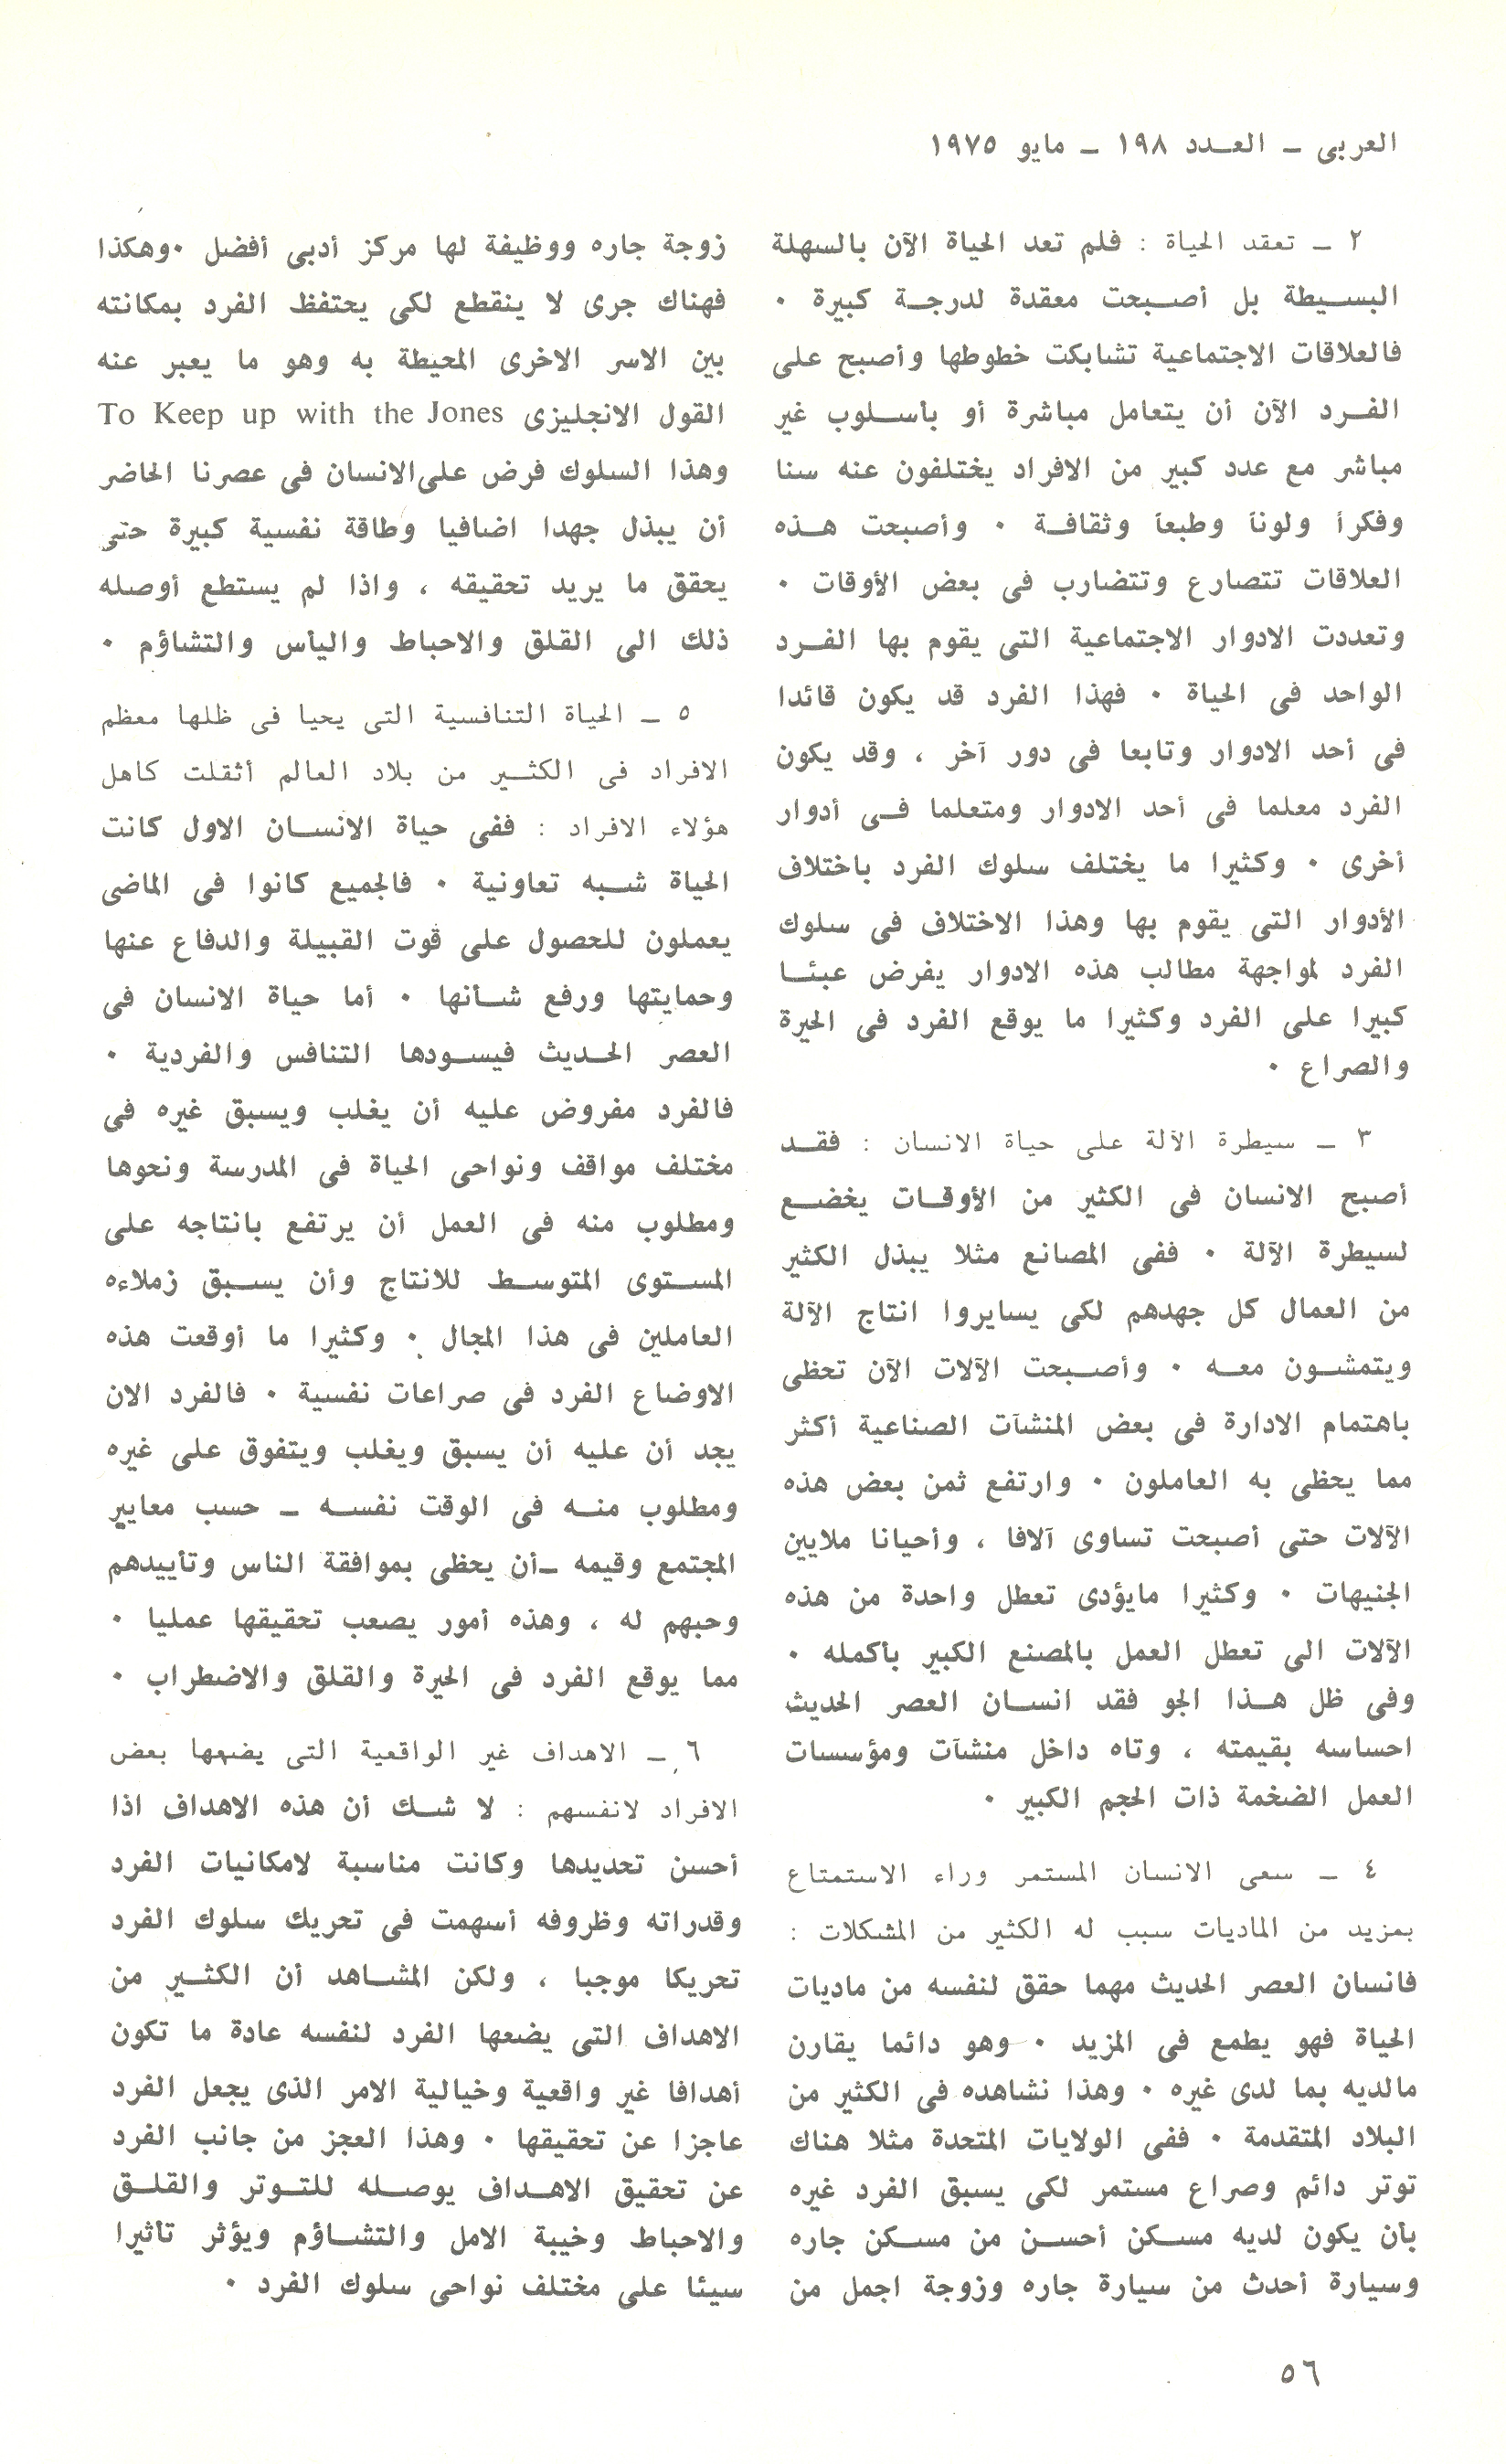 العربى ـ العـدد ١٩٨ ـ مايو ١٩٧٥
٢ ـ تعقد الحياة : فلم تعد الحياة الآن بالسهلة
البسـيطة بل أصـبحت معقدة لدرجـة كبيرة ٠
فالعلاقات الاجتماعية تشابكت خطوطها وأصبح على
الفـرد الآن أن يتعامل مباشرة أو بأسـلوب غير
مباشر مع عدد كبير من الافراد يختلفون عنه سنا
وفكراً ولوناً وطبعاً وثقافـة ٠ وأصبحت هـذه
العلاقات تتصارع وتتضارب فى بعض الأوقات ٠
وتعددت الادوار الاجتماعية التى يقوم بها الفـرد
الواحد فى الحياة ٠ فهذا الفرد قد يكون قائدا
فى أحد الادوار وتابعا فى دور آخر ، وقد يكون
الفرد معلما فى أحد الادوار ومتعلما فـى أدوار
أخرى ٠ وكثيرا ما يختلف سلوك الفرد باختلاف
الأدوار التى يقوم بها وهذا الاختلاف فى سلوك
الفرد لمواجهة مطالب هذه الادوار يفرض عبئـا
كبيرا على الفرد وكثيرا ما يوقع الفرد فى الحيرة
والصراع ٠
٣ ـ سيطرة الآلة على حياة الانسان : فقـد
أصبح الانسان فى الكثير من الأوقـات يخضـع
لسيطرة الآلة ٠ ففى المصانع مثلا يبذل الكثير
من العمال كل جهدهم لكى يسايروا انتاج الآلة
ويتمشـون معـه ٠ وأصـبحت الآلات الآن تحظى
باهتمام الادارة فى بعض المنشآت الصناعية أكثر
مما يحظى به العاملون ٠ وارتفع ثمن بعض هذه
الآلات حتى أصبحت تساوى آلافا ، وأحيانا ملايين
الجنيهات ٠ وكثيرا مايؤدى تعطل واحدة من هذه
الآلات الى تعطل العمل بالمصنع الكبير بأكمله ٠
وفى ظل هـذا الجو فقد انسـان العصر الحديث
احساسه بقيمته ، وتاه داخل منشآت ومؤسسات
العمل الضخمة ذات الحجم الكبير ٠
٤ ـ سعى الانسان المستمر وراء الاستمتاع
بمزيد من الماديات سبب له الكثير من المشكلات :
فانسان العصر الحديث مهما حقق لنفسه من ماديات
الحياة فهو يطمع فى المزيد ٠ وهو دائما يقارن
مالديه بما لدى غيره ٠ وهذا نشاهده فى الكثير من
البلاد المتقدمة ٠ ففى الولايات المتحدة مثلا هناك
توتر دائم وصراع مستمر لكى يسبق الفرد غيره
بأن يكون لديه مسـكن أحسـن من مسـكن جاره
وسيارة أحدث من سيارة جاره وزوجة اجمل من
زوجة جاره ووظيفة لها مركز أدبى أفضل ٠وهكذا
فهناك جرى لا ينقطع لكى يحتفظ الفرد بمكانته
بين الاسر الاخرى المحيطة به وهو ما يعبر عنه
القول الانجليزى To Keep up with the Jones
وهذا السلوك فرض على الانسان فى عصرنا الحاضر
أن يبذل جهدا اضافيا وطاقة نفسية كبيرة حتى
يحقق ما يريد تحقيقه ، واذا لم يستطع أوصله
ذلك الى القلق والاحباط واليأس والتشاؤم ٠
٥ ـ الحياة التنافسية التى يحيا فى ظلها معظم
الافراد فى الكثـير من بلاد العالم أثقلت كاهل
هؤلاء الافراد : ففى حياة الانسـان الاول كانت
الحياة شـبه تعاونية ٠ فالجميع كانوا فى الماضى
يعملون للحصول على قوت القبيلة والدفاع عنها
وحمايتها ورفع شـأنها ٠ أما حياة الانسان فى
العصر الحـديث فيسـودها التنافس والفردية ٠
فالفرد مفروض عليه أن يغلب ويسبق غيره فى
مختلف مواقف ونواحى الحياة فى المدرسة ونحوها
ومطلوب منه فى العمل أن يرتفع بانتاجه على
المسـتوى المتوسـط للانتاج وأن يسـبق زملاءه
العاملين فى هذا المجال ٠ وكثيرا ما أوقعت هذه
الاوضاع الفرد فى صراعات نفسية ٠ فالفرد الان
يجد أن عليه أن يسبق ويغلب ويتفوق على غيره
ومطلوب منـه فى الوقت نفسـه ـ حسب معايير
المجتمع وقيمه ـأن يحظى بموافقة الناس وتأييدهم
وحبهم له ، وهذه أمور يصعب تحقيقها عمليا ٠
مما يوقع الفرد فى الحيرة والقلق والاضطراب ٠
٦ ـ الاهداف غير الواقعية التى يضعها بعض
الافراد لانفسهم : لا شـك أن هذه الاهداف اذا
أحسن تحديدها وكانت مناسبة لامكانيات الفرد
وقدراته وظروفه أسهمت فى تحريك سلوك الفرد
تحريكا موجبا ، ولكن المشـاهد أن الكثـير من
الاهداف التى يضعها الفرد لنفسه عادة ما تكون
أهدافا غير واقعية وخيالية الامر الذى يجعل الفرد
عاجزا عن تحقيقها ٠ وهذا العجز من جانب الفرد
عن تحقيق الاهـداف يوصـله للتـوتر والقلـق
والاحباط وخيبة الامل والتشـاؤم ويؤثر تأثيرا
سيئا على مختلف نواحى سلوك الفرد ٠
٥٦